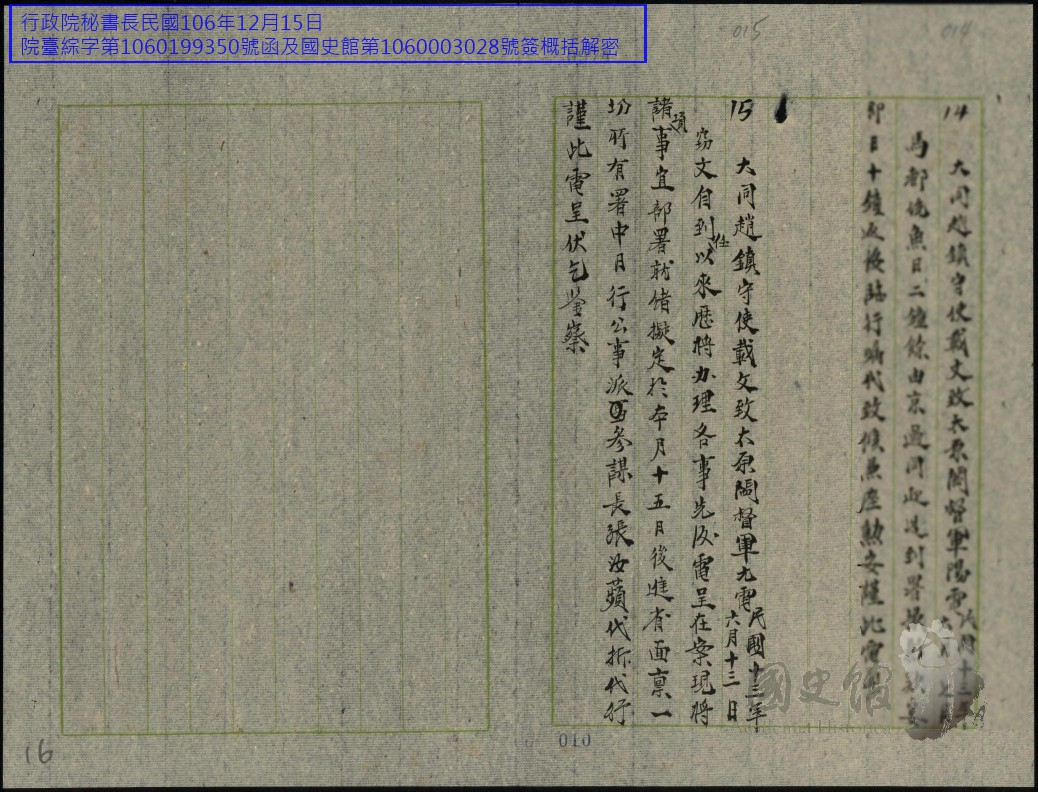 行政院秘書長民國106年12月15日
院臺綜字第1060199350號函及國史館第1060003028號簽概括解密
014
14 大同趙鎮守使戴文致太原閻督軍陽電
馬都統魚日二鐘餘由京過同
即日十鐘
015
15 大同趙鎮守使戴文致太原閻督軍元電 民國十三年六月十三日
竊文自到任以來歷將办理各事先後電呈在案現將
諸項事宜部署就緒擬定於本月十五日後進省面稟一
切所有署中日行公事派參謀長張汝蘋代拆代行
謹此電呈伏乞鉴察
國史館
010
16